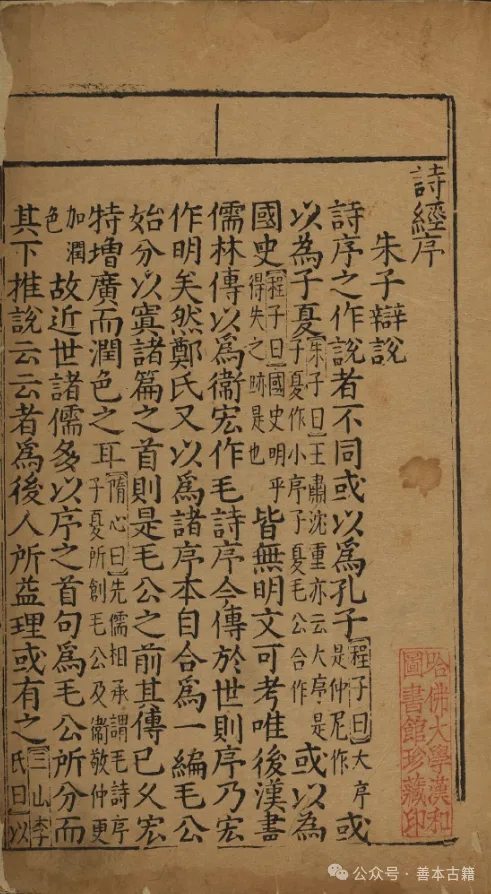 詩經序
朱子辯說
詩序之作說者不同或以爲孔子程子曰大序是仲尼作或
以為子夏朱子曰王肅沈重亦云大序是子夏作小序子夏毛公合作或以為
國史程子曰國史明乎得失之跡是也皆無明文可考唯後漢書
儒林傳以爲衞宏作毛詩序今傳於世則序乃宏
作明矣然鄭氏又以爲諸序本自合爲一編毛公
始分以寘諸篇之首則是毛公之前其傳已久宏
特增廣而潤色之耳隋心曰先儒相承謂毛詩序子夏所創毛公及衞敬仲更
加潤色故近世諸儒多以序之首句爲毛公所分而
其下推說云云者爲後人所益理或有之三山李氏曰以
哈佛大學漢和圖書館珍藏印
公众号·善本古籍